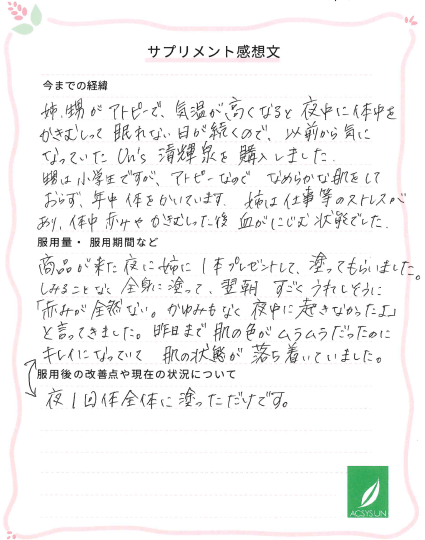 サプリメント感想文
今までの経緯
姉、甥がアトピーで、気温が高くなると夜中に体中を
かきむしって眠れない日が続くので、以前から気に
なっていたUn's 清輝泉を購入しました。
甥は小学生ですが、アトピーなので なめらかな肌をして
おらず、年中体をかいています。姉は仕事等のストレスが
あり、体中赤みやかきむしった後 血がにじむ状態でした。
服用量・服用期間など
商品が来た夜に姉に1本プレゼントして、塗ってもらいました。
しみることなく全身に塗って、翌朝 すごくうれしそうに
「赤みが全然ない。かゆみもなく夜中に起きなかったよ」
と言ってきました。昨日まで肌の色がムラムラだったのに
キレイになっていて 肌の状態が落ち着いていました。
服用後の改善点や現在の状況について
夜1回体全体に塗っただけです。
ACSYS UN